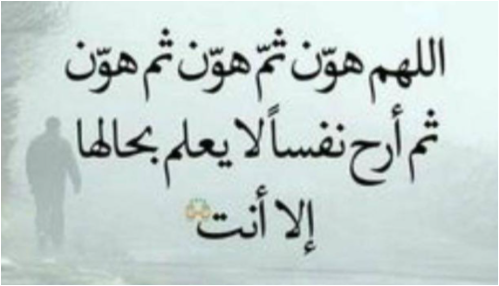 اللهم هوّن ثمّ هوّن ثم هوّن
ثم أرح نفساً لا يعلم بحالها
إلا أنت